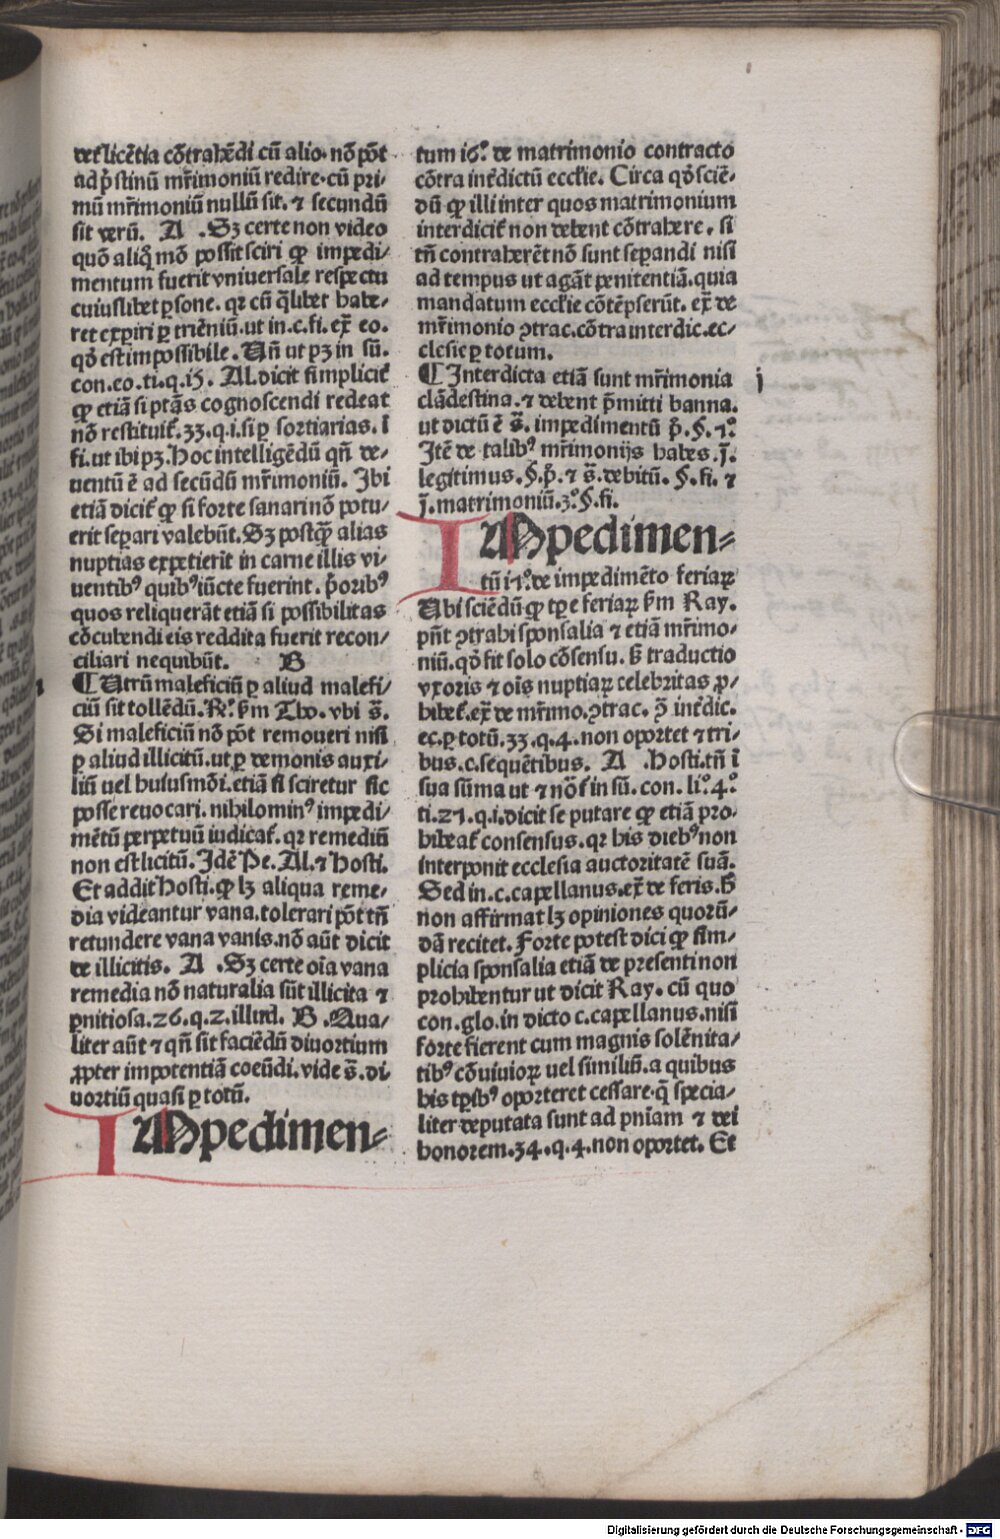 det᷑ licẽtia cõtrahẽdi cũ alio. nõ põt
ad p̃stinũ mr̃imoniũ redire. cũ pri-
mũ mr̃imoniũ nullũ sit. ⁊ secundũ
sit verũ. A .Sꝫ certe non video
quõ aliq̃ mõ possit sciri ꝙ impedi-
mentum fuerit vniuersale respectu
cuiuslibet ꝑsone. qꝛ cũ q̃libet habe-
ret exꝑiri ꝑ trienniũ. ut in .c. fi. ex̃ eo.
qõ est impossibile. Uñ ut pꝫ in sũ.
con. eo. ti. q. 15. Al. dicit simplicit᷑
ꝙ etiã si ptãs cognoscendi redeat
nõ restituit᷑. 33. q. i. si ꝑ sortiarias. ĩ
fi. ut ibi pꝫ. Hoc intelligẽdũ qñ de-
uentũ ẽ ad secũdũ mr̃imoniũ. Ibi
etiã dicit᷑ ꝙ si forte sanari nõ potu-
erit seꝑari valebũt. Sꝫ postꝙ̃ alias
nuptias expetierit in carne illis vi-
uentibꝰ quibꝰ iũcte fuerint. p̃oribꝰ
quos reliquerãt etiã si possibilitas
cõcubendi eis reddita fuerit recon-
ciliari nequibũt. B
¶ Utrũ maleficiũ ꝑ aliud malefi-
ciũ sit tollẽdũ. R̃º. ẜm Tho. vbi s̃.
Si maleficiũ nõ põt remoueri nisi
ꝑ aliud illicitũ. ut ꝑ demonis auxi-
liũ uel huiusmõi. etiã si sciretur sic
posse reuocari. nihilominꝰ impedi-
mẽtũ perpetuũ iudicat᷑. qꝛ remediũ
non est licitũ. Idẽ Pe. Al. ⁊ Hosti.
Et addit Hosti. ꝙ lꝫ aliqua reme-
dia videantur vana. tolerari põt tñ
retundere vana vanis. nõ aũt dicit
de illicitis. A .Sꝫ certe oĩa vana
remedia nõ naturalia sũt illicita ⁊
ꝑnitiosa. 26. q. 2. illud. B .Qua-
liter aũt ⁊ qñ sit faciẽdũ diuortium
ꝓpter impotentiã coeũdi. vide s̃. di-
uortiũ quasi ꝑ totũ.
IMpedimen-
tum 16º. de matrimonio contracto
cõtra inťdictũ eccľie. Circa qõ sciẽ-
dũ ꝙ illi inter quos matrimonium
interdicit᷑ non debent cõtrahere. si
tñ contraherẽt nõ sunt seꝑandi nisi
ad tempus ut agãt penitentiã. quia
mandatum eccľie cõtẽpserũt. ex̃ de
mr̃imonio ꝯtrac. cõtra interdic. ec-
clesie ꝑ totum.
¶ Interdicta etiã sunt mr̃imonia j
clãdestina. ⁊ debent p̃mitti banna.
ut dictũ ẽ s̃. impedimentũ p̃. §. 1º.
Itẽ de talibꝰ mr̃imonijs habes. j̃.
legitimus. §. p̃. ⁊ s̃. debitũ. §. fi. ⁊
j̃. matrimoniũ. 3º. §. fi.
IMpedimen-
tũ 17º. de impedimẽto feriaꝝ
Ubi sciẽdũ ꝙ tꝑe feriaꝝ ẜm Ray.
pñt ꝯtrahi sponsalia ⁊ etiã mr̃imo-
niũ. qõ fit solo cõsensu. ẜ traductio
vxoris ⁊ oĩs nuptiaꝝ celebritas ꝓ-
hibet᷑. ex̃ de mr̃imo. ꝯtrac. ꝯ̃ inťdic.
ec. ꝑ totũ. 33. q. 4. non oportet ⁊ tri-
bus .c. sequẽtibus. A .Hosti. tñ ĩ
sua sũma ut ⁊ nõt᷑ in sũ. con. li°. 4º.
ti. 21. q. i. dicit se putare ꝙ etiã pro-
hibeat᷑ consensus. qꝛ his diebꝰ non
interponit ecclesia auctoritatẽ suã.
Sed in .c. capellanus. ex̃ de feris. ħ
non affirmat lꝫ opiniones quorũ-
dã recitet. Forte potest dici ꝙ sim-
plicia sponsalia etiã de presenti non
prohibentur ut dicit Ray. cũ quo
con. glo. in dicto c. capellanus. nisi
forte fierent cum magnis solẽnita-
tibꝰ cõuiuioꝝ uel similiũ. a quibus
his tꝑibꝰ oporteret cessare. q̃ specia-
liter deputata sunt ad pñiam ⁊ dei
honorem. 34. q. 4. non oportet. Et
Digitalisierung gefördert durch die Deutsche Forschungsgemeinschaft - DFG